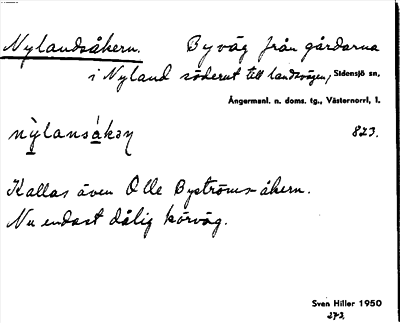 Nylandsåkern. Byväg från gårdarna
i Nyland söderut till landsvägen, Sidensjö sn,
Ångermanl. n. doms. tg., Västernorrl. l.
nỳlansákəɳ 823.
Kallas även Olle Byströms-åkern.
Nu endast dålig körväg.
Sven Hiller 1950
273.